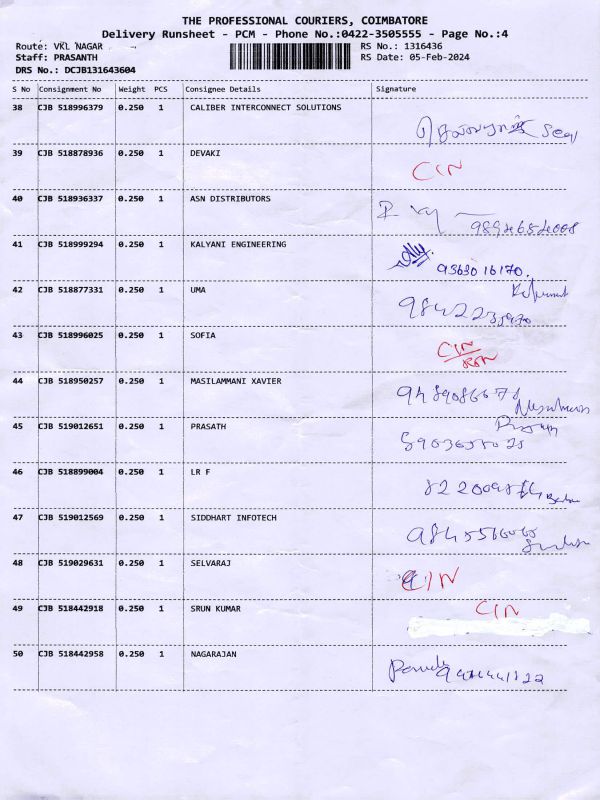 THE PROFESSIONAL COURIERS, COIMBATORE
Delivery Runsheet - PCM - Phone No.:0422-3505555 - Page No.:4
Route: VKL NAGAR RS No.: 1316436
Staff: PRASANTH RS Date: 05-Feb-2024
DRS No.: DCJB131643604
S No Consignment No Weight PCS Consignee Details Signature
38 CJB 518996379 0.250 1 CALIBER INTERCONNECT SOLUTIONS
seal
39 CJB 518878936 0.250 1 DEVAKI
CIN
40 CJB 518936337 0.250 1 ASN DISTRIBUTORS
41 CJB 518999294 0.250 1 KALYANI ENGINEERING
9363016170.
42 CJB 518877331 0.250 1 UMA
43 CJB 518996025 0.250 1 SOFIA
CIN
44 CJB 518950257 0.250 1 MASILAMMANI XAVIER
45 CJB 519012651 0.250 1 PRASATH
46 CJB 518899004 0.250 1 LR F
47 CJB 519012569 0.250 1 SIDDHART INFOTECH
48 CJB 519029631 0.250 1 SELVARAJ
CIN
49 CJB 518442918 0.250 1 SRUN KUMAR
CIN
50 CJB 518442958 0.250 1 NAGARAJAN